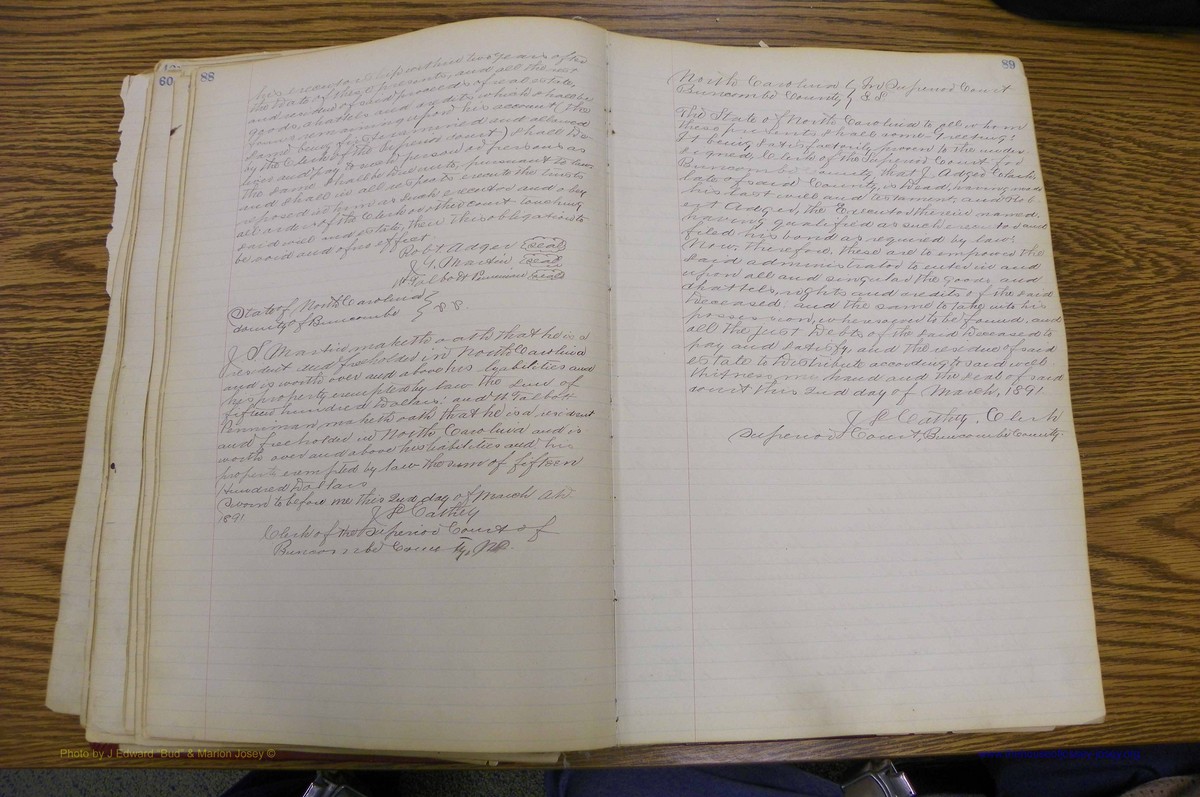 60
88
his executorship within two years after
the date of these presents, and all the rest
and residue of said proceeds of real estate,
goods, chattels and credits which shall be
found remaining upon his account (the
same being first examined and allowed
by the Clerk of the Superior Court) shall de-
liver and pay to such person or persons as
the same shall be due unto, pursuant to law
and shall in all respects execute the trusts
reposed in him as such executor and obey
all orders of the Clerk or the court touching
said will and estate, then this obligation to
be void and of no effect
Robt Adger (Seal)
J. S. Martin (Seal)
W Talbot Penniman (Seal)
State of North Carolina
County of Buncombe } S S.
J. S. Martin maketh oath that he is a
resident and freeholder in North Carolina
and is worth over and above his liabilities and
his property exempted by law the sum of
fifteen hundred Dollars; and W Talbot
Penniman maketh oath that he is a resident
and freeholder in North Carolina and is
worth over and above his liabilities and his
property exempted by law the sum of fifteen
Hundred Dollars
Sworn to before me this 2nd day of March AD.
1891
J L Cathey
Clerk of the Superior Court of
Buncombe County, NC.
89
North Carolina } In Superior Court
Buncombe County } S S.
The State of North Carolina to all whom
these presents shall come Greeting:
It being satisfactorily proven to the under-
signed, Clerk of the Superior Court for
Buncombe County, that J. Adger Clark
late of said County, is Dead, having made
his last will and testament, and Rob-
ert Adger, the Executor therein named,
having qualified as such executor and
filed his bond as required by law;
Now, therefore, these are to empower the
said administrator to enter in and
upon all and singular the goods and
chattels, rights and credits of the said
Deceased, and the same to take into his
possession, wheresoever to be found, and
all the just Debts of the said Deceased to
pay and satisfy, and the residue of said
estate to Distribute according to said will
Witness, my hand and the seal of said
court this 2nd day of March, 1891
J L Cathey, Clerk
Superior Court, Buncombe County.
Photo by J Edward "Bud" & Marion Josey ©